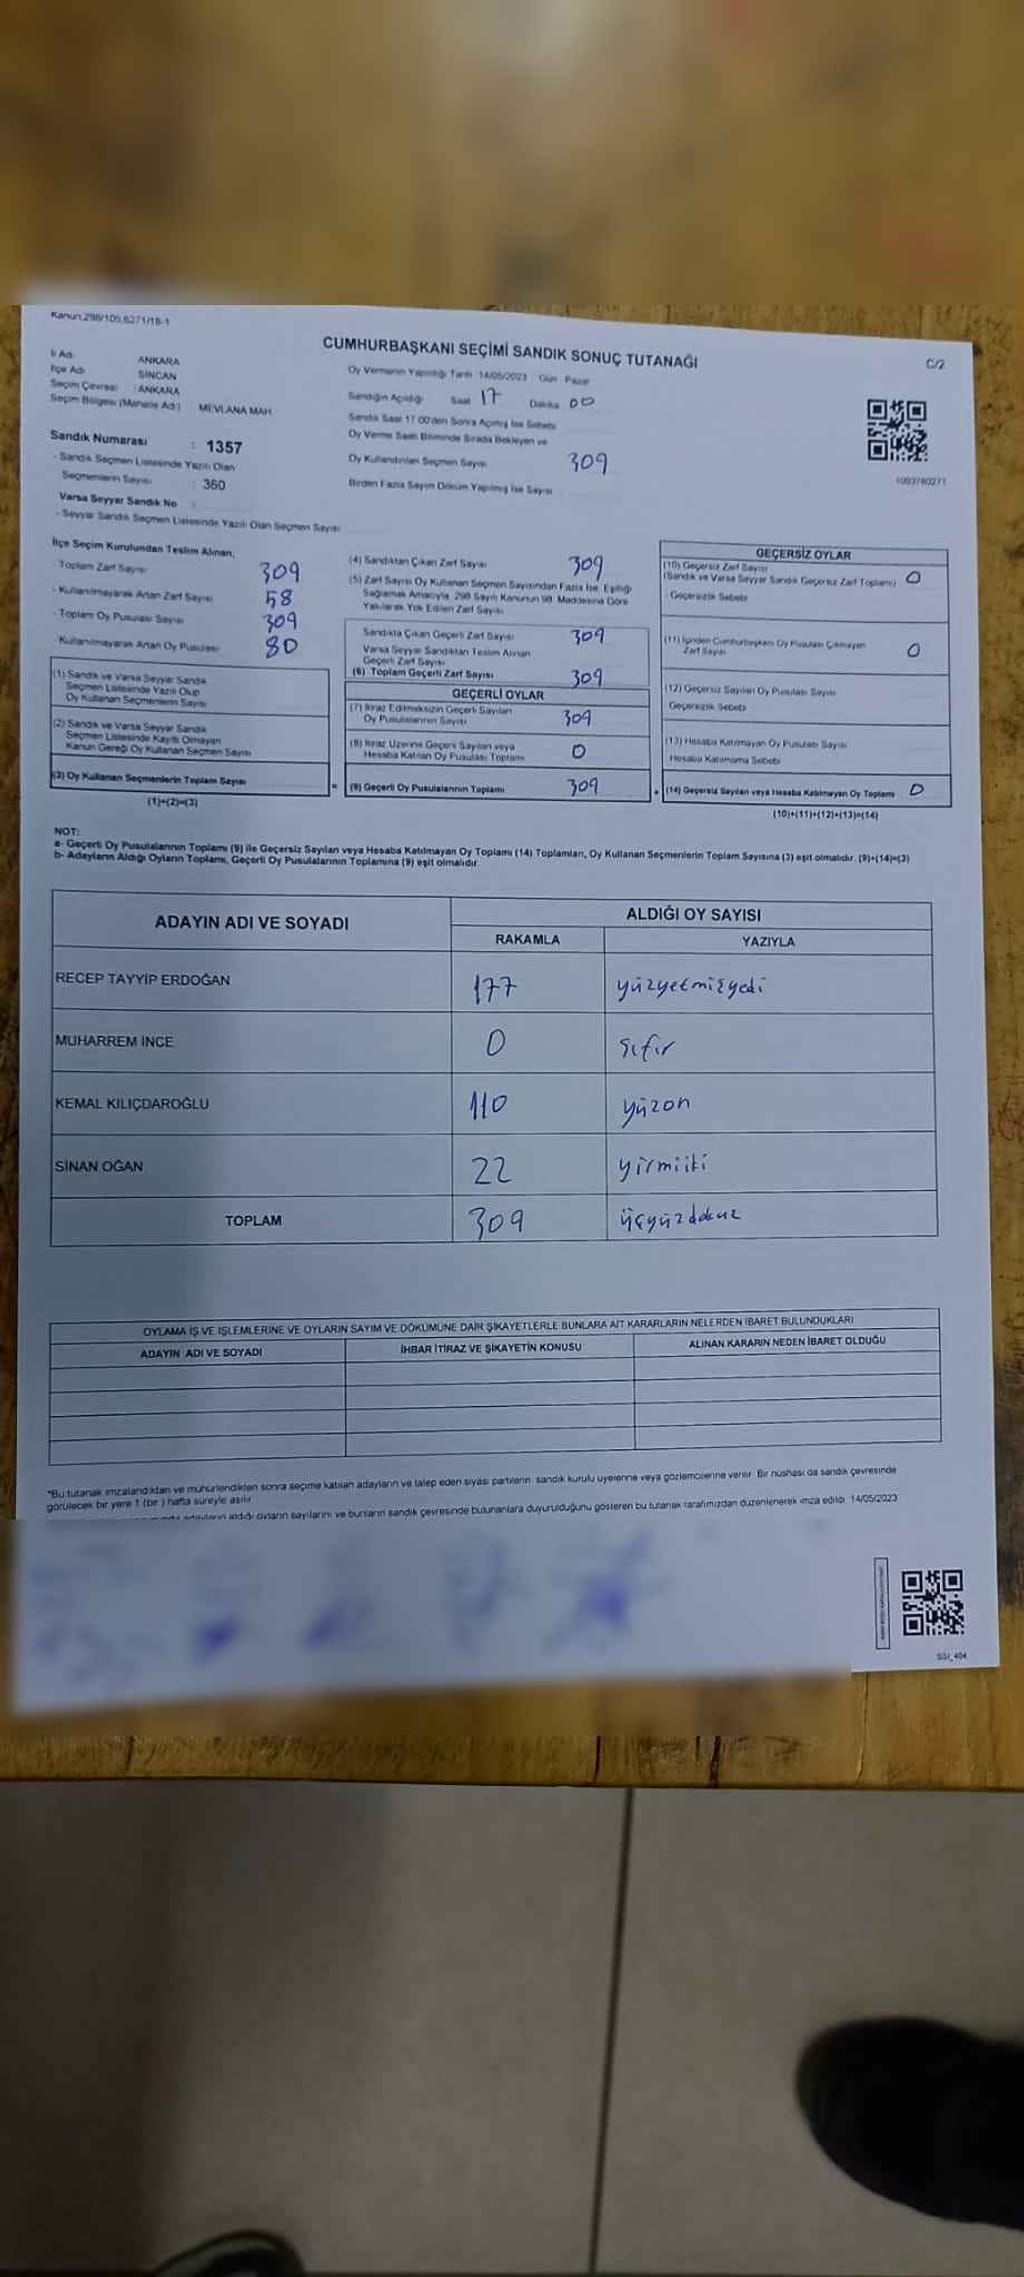 Kanun.298/105,6271/18-1
CUMHURBAŞKANI SEÇİMİ SANDIK SONUÇ TUTANAĞI
C/2
İl Adı ANKARA
İlçe Adı SİNCAN
Seçim Çevresi : ANKARA
Seçim Bölgesi (Mahalle Adı) MEVLANA MAH.
Oy Vermenin Yapıldığı Tarih 14/05/2023 Gün Pazar
Sandığın Açıldığı Saat 17 Dakika 00
Sandık Saat 17.00'den Sonra Açılmış İse Sebebi
Oy Verme Saati Bitiminde Sırada Bekleyen ve
Oy Kullandırılan Seçmen Sayısı 309
Birden Fazla Sayım Döküm Yapılmış İse Sayısı
1093780271
Sandık Numarası : 1357
- Sandık Seçmen Listesinde Yazılı Olan
Seçmenlerin Sayısı : 360
Varsa Seyyar Sandık No :
- Seyyar Sandık Seçmen Listesinde Yazılı Olan Seçmen Sayısı
İlçe Seçim Kurulundan Teslim Alınan,
- Toplam Zarf Sayısı 309
- Kullanılmayarak Artan Zarf Sayısı 58
- Toplam Oy Pusulası Sayısı 309
- Kullanılmayarak Artan Oy Pusulası 80
(1) Sandık ve Varsa Seyyar Sandık
Seçmen Listesinde Yazılı Olup
Oy Kullanan Seçmenlerin Sayısı
(2) Sandık ve Varsa Seyyar Sandık
Seçmen Listesinde Kayıtlı Olmayan
Kanun Gereği Oy Kullanan Seçmen Sayısı
(3) Oy Kullanan Seçmenlerin Toplam Sayısı
(1)+(2)=(3)
=
(4) Sandıktan Çıkan Zarf Sayısı 309
(5) Zarf Sayısı Oy Kullanan Seçmen Sayısından Fazla İse, Eşitliği
Sağlamak Amacıyla, 298 Sayılı Kanunun 98. Maddesine Göre
Yakılarak Yok Edilen Zarf Sayısı
Sandıkta Çıkan Geçerli Zarf Sayısı 309
Varsa Seyyar Sandıktan Teslim Alınan
Geçerli Zarf Sayısı
(6) Toplam Geçerli Zarf Sayısı 309
GEÇERLİ OYLAR
(7) İtiraz Edilmeksizin Geçerli Sayılan
Oy Pusulalarının Sayısı 309
(8) İtiraz Üzerine Geçerli Sayılan veya
Hesaba Katılan Oy Pusulası Toplamı 0
(9) Geçerli Oy Pusulalarının Toplamı 309
+
GEÇERSİZ OYLAR
(10) Geçersiz Zarf Sayısı
(Sandık ve Varsa Seyyar Sandık Geçersiz Zarf Toplamı) 0
- Geçersizlik Sebebi
(11) İçinden Cumhurbaşkanı Oy Pusulası Çıkmayan
Zarf Sayısı 0
(12) Geçersiz Sayılan Oy Pusulası Sayısı
Geçersizlik Sebebi
(13) Hesaba Katılmayan Oy Pusulası Sayısı
Hesaba Katılmama Sebebi
(14) Geçersiz Sayılan veya Hesaba Katılmayan Oy Toplamı 0
(10)+(11)+(12)+(13)=(14)
NOT:
a- Geçerli Oy Pusulalarının Toplamı (9) ile Geçersiz Sayılan veya Hesaba Katılmayan Oy Toplamı (14) Toplamları, Oy Kullanan Seçmenlerin Toplam Sayısına (3) eşit olmalıdır. (9)+(14)=(3)
b- Adayların Aldığı Oyların Toplamı, Geçerli Oy Pusulalarının Toplamına (9) eşit olmalıdır.
ADAYIN ADI VE SOYADI ALDIĞI OY SAYISI
RAKAMLA YAZIYLA
RECEP TAYYİP ERDOĞAN 177 yüzyetmişyedi
MUHARREM İNCE 0 sıfır
KEMAL KILIÇDAROĞLU 110 yüzon
SİNAN OĞAN 22 yirmiiki
TOPLAM 309 üçyüzdokuz
OYLAMA İŞ VE İŞLEMLERİNE VE OYLARIN SAYIM VE DÖKÜMÜNE DAİR ŞİKAYETLERLE BUNLARA AİT KARARLARIN NELERDEN İBARET BULUNDUKLARI
ADAYIN ADI VE SOYADI İHBAR İTİRAZ VE ŞİKAYETİN KONUSU ALINAN KARARIN NEDEN İBARET OLDUĞU
*Bu tutanak imzalandıktan ve mühürlendikten sonra seçime katılan adayların ve talep eden siyasi partilerin sandık kurulu üyelerine veya gözlemcilerine verilir. Bir nüshası da sandık çevresinde
görülecek bir yere 1 (bir ) hafta süreyle asılır.
adayların aldığı oyların sayılarını ve bunların sandık çevresinde bulunanlara duyurulduğunu gösteren bu tutanak tarafımızdan düzenlenerek imza edildi. 14/05/2023
SSI_404